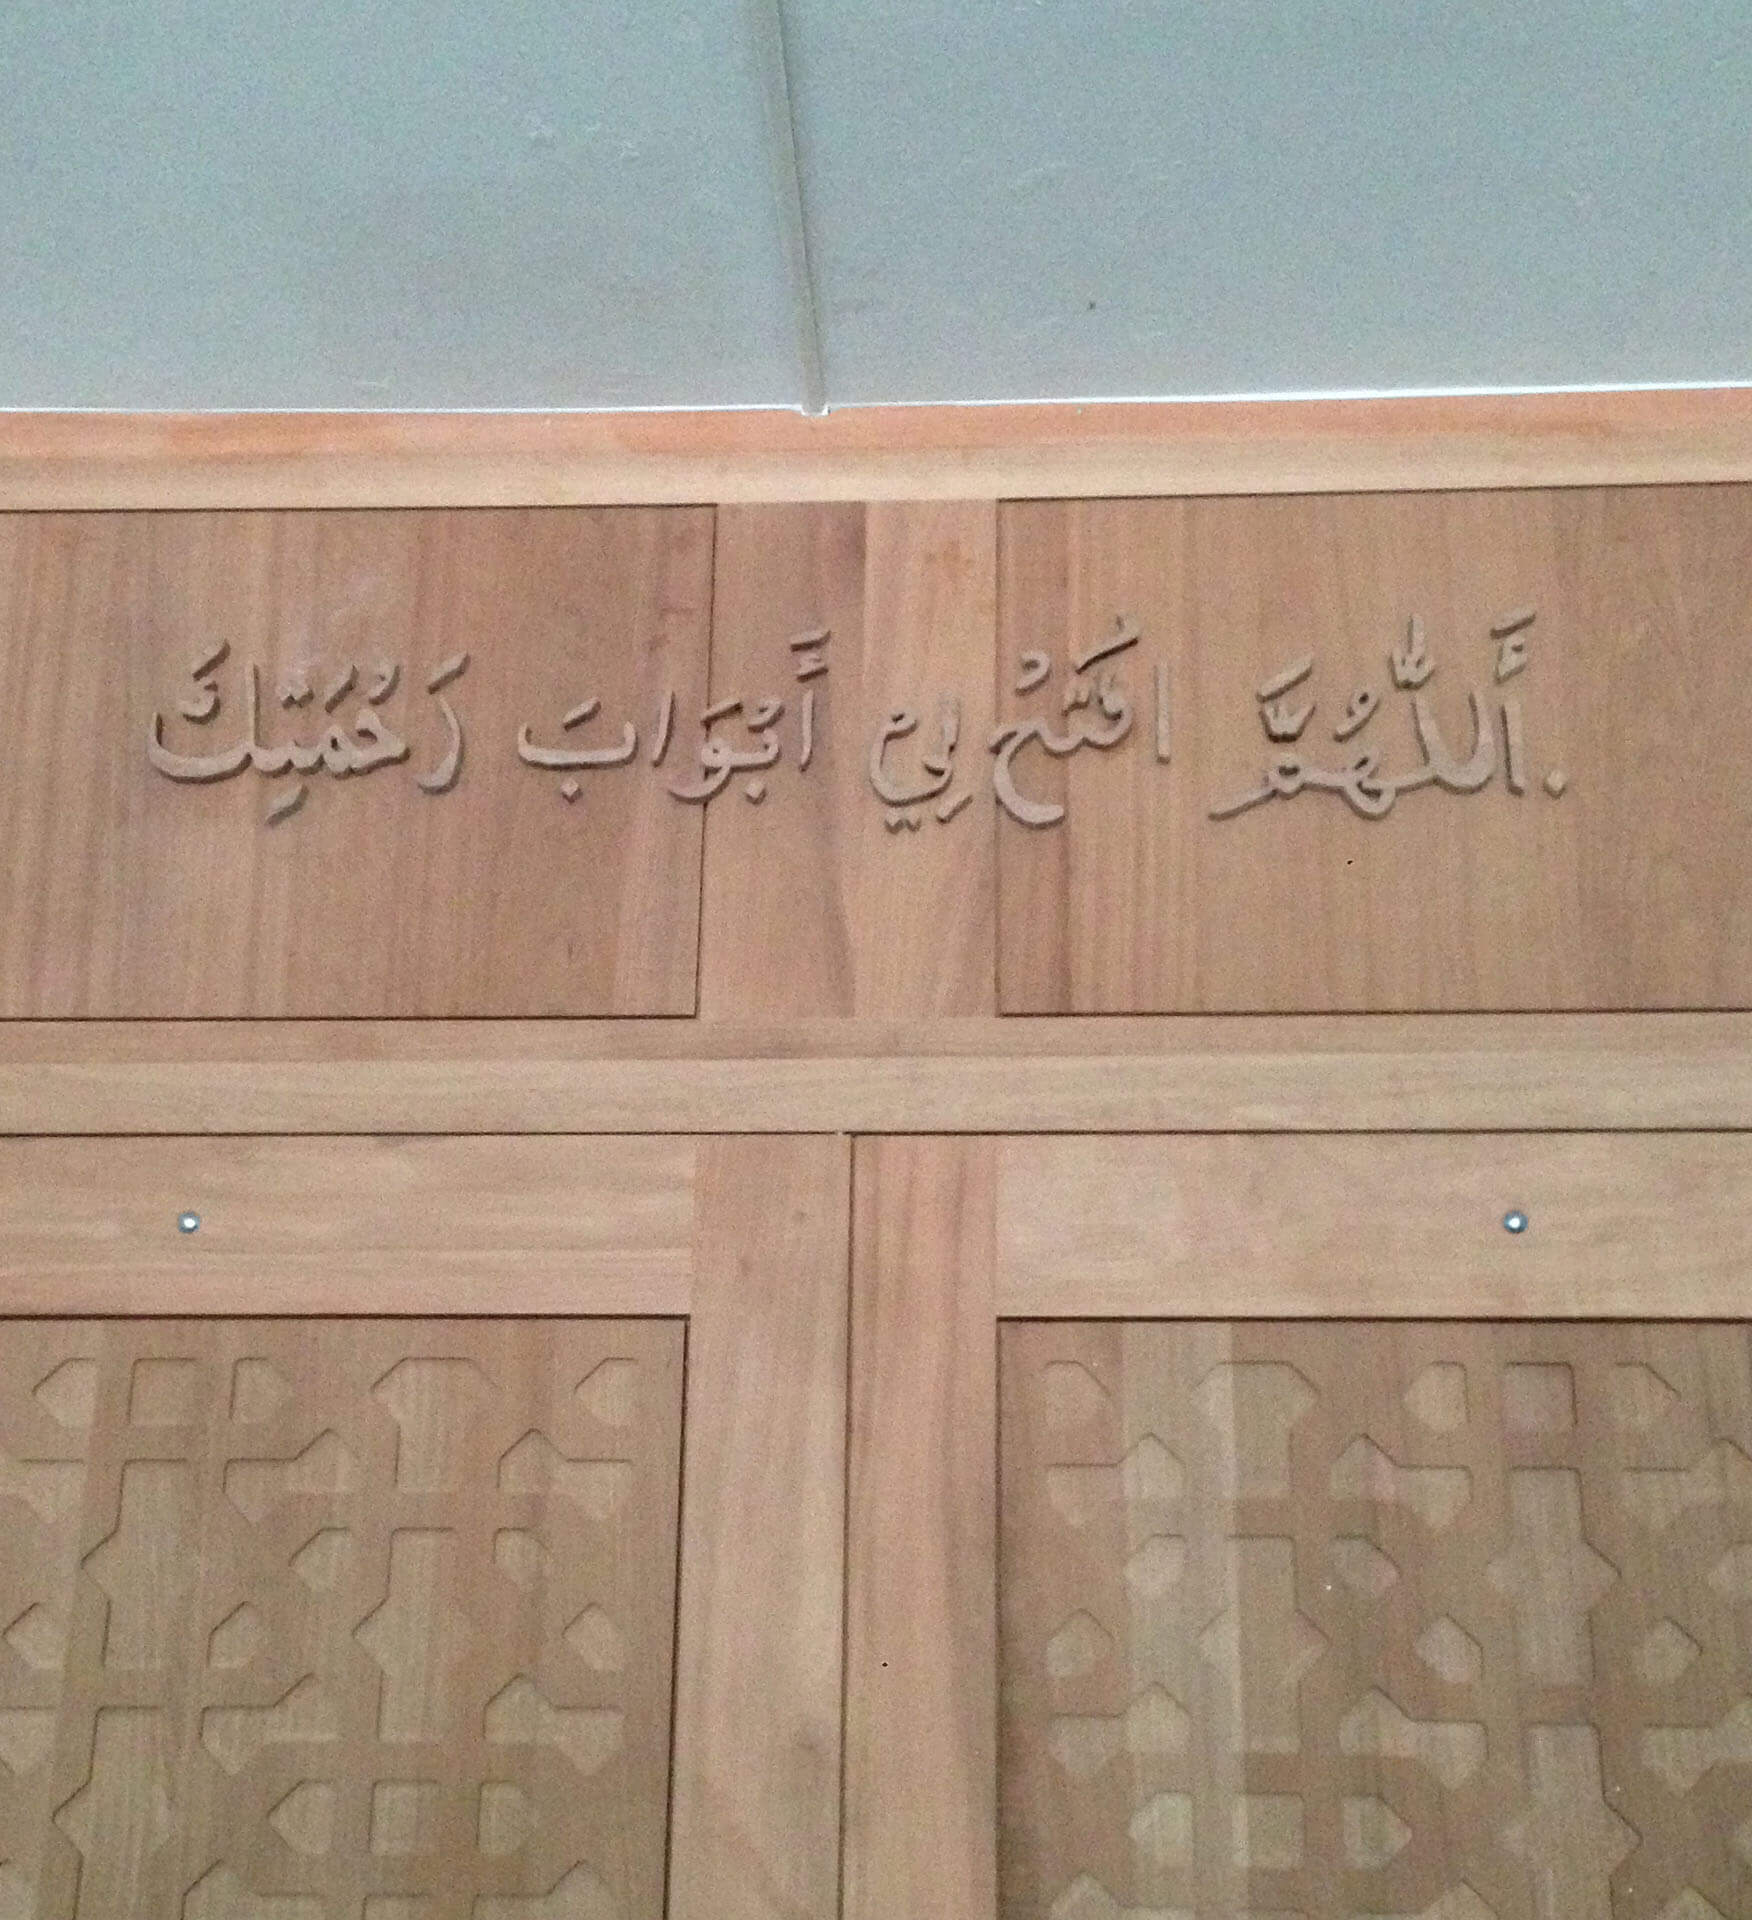 .أَللّٰهُمَّ افْتَحْ لِيْ أَبْوَابَ رَحْمَتِكَ